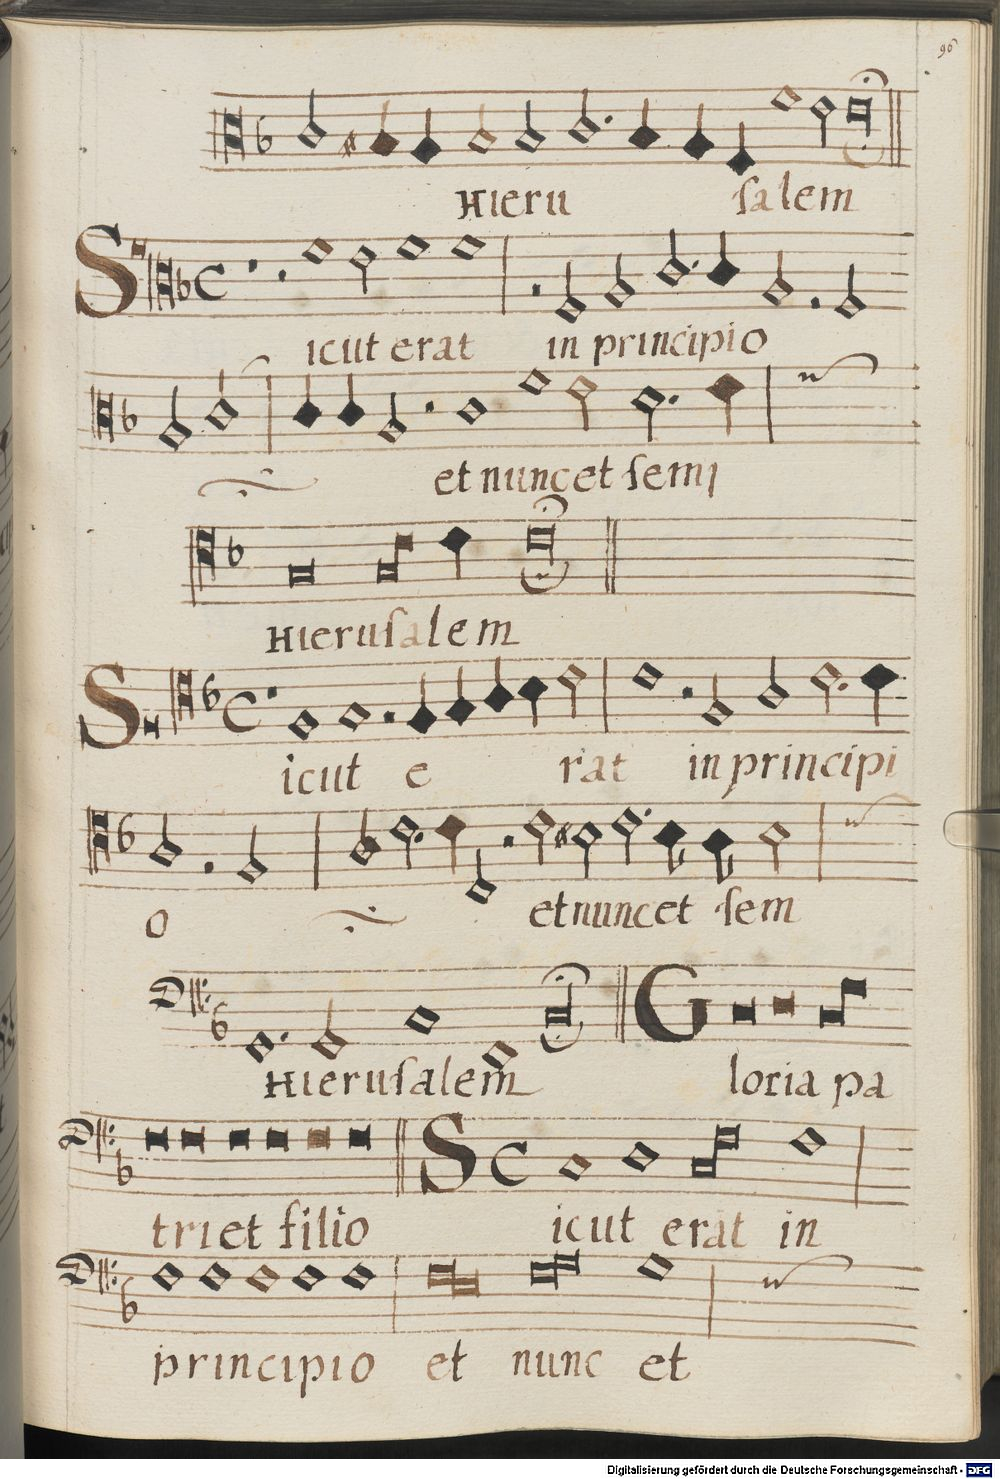 96
Hieru salem
Sicut erat in principio
et nunc et semp
Hierusalem
Sicut e rat in principi
o et nunc et sem
Hierusalem Gloria pa
tri et filio Sicut erat in
principio et nunc et
Digitalisierung gefördert durch die Deutsche Forschungsgemeinschaft - DFG